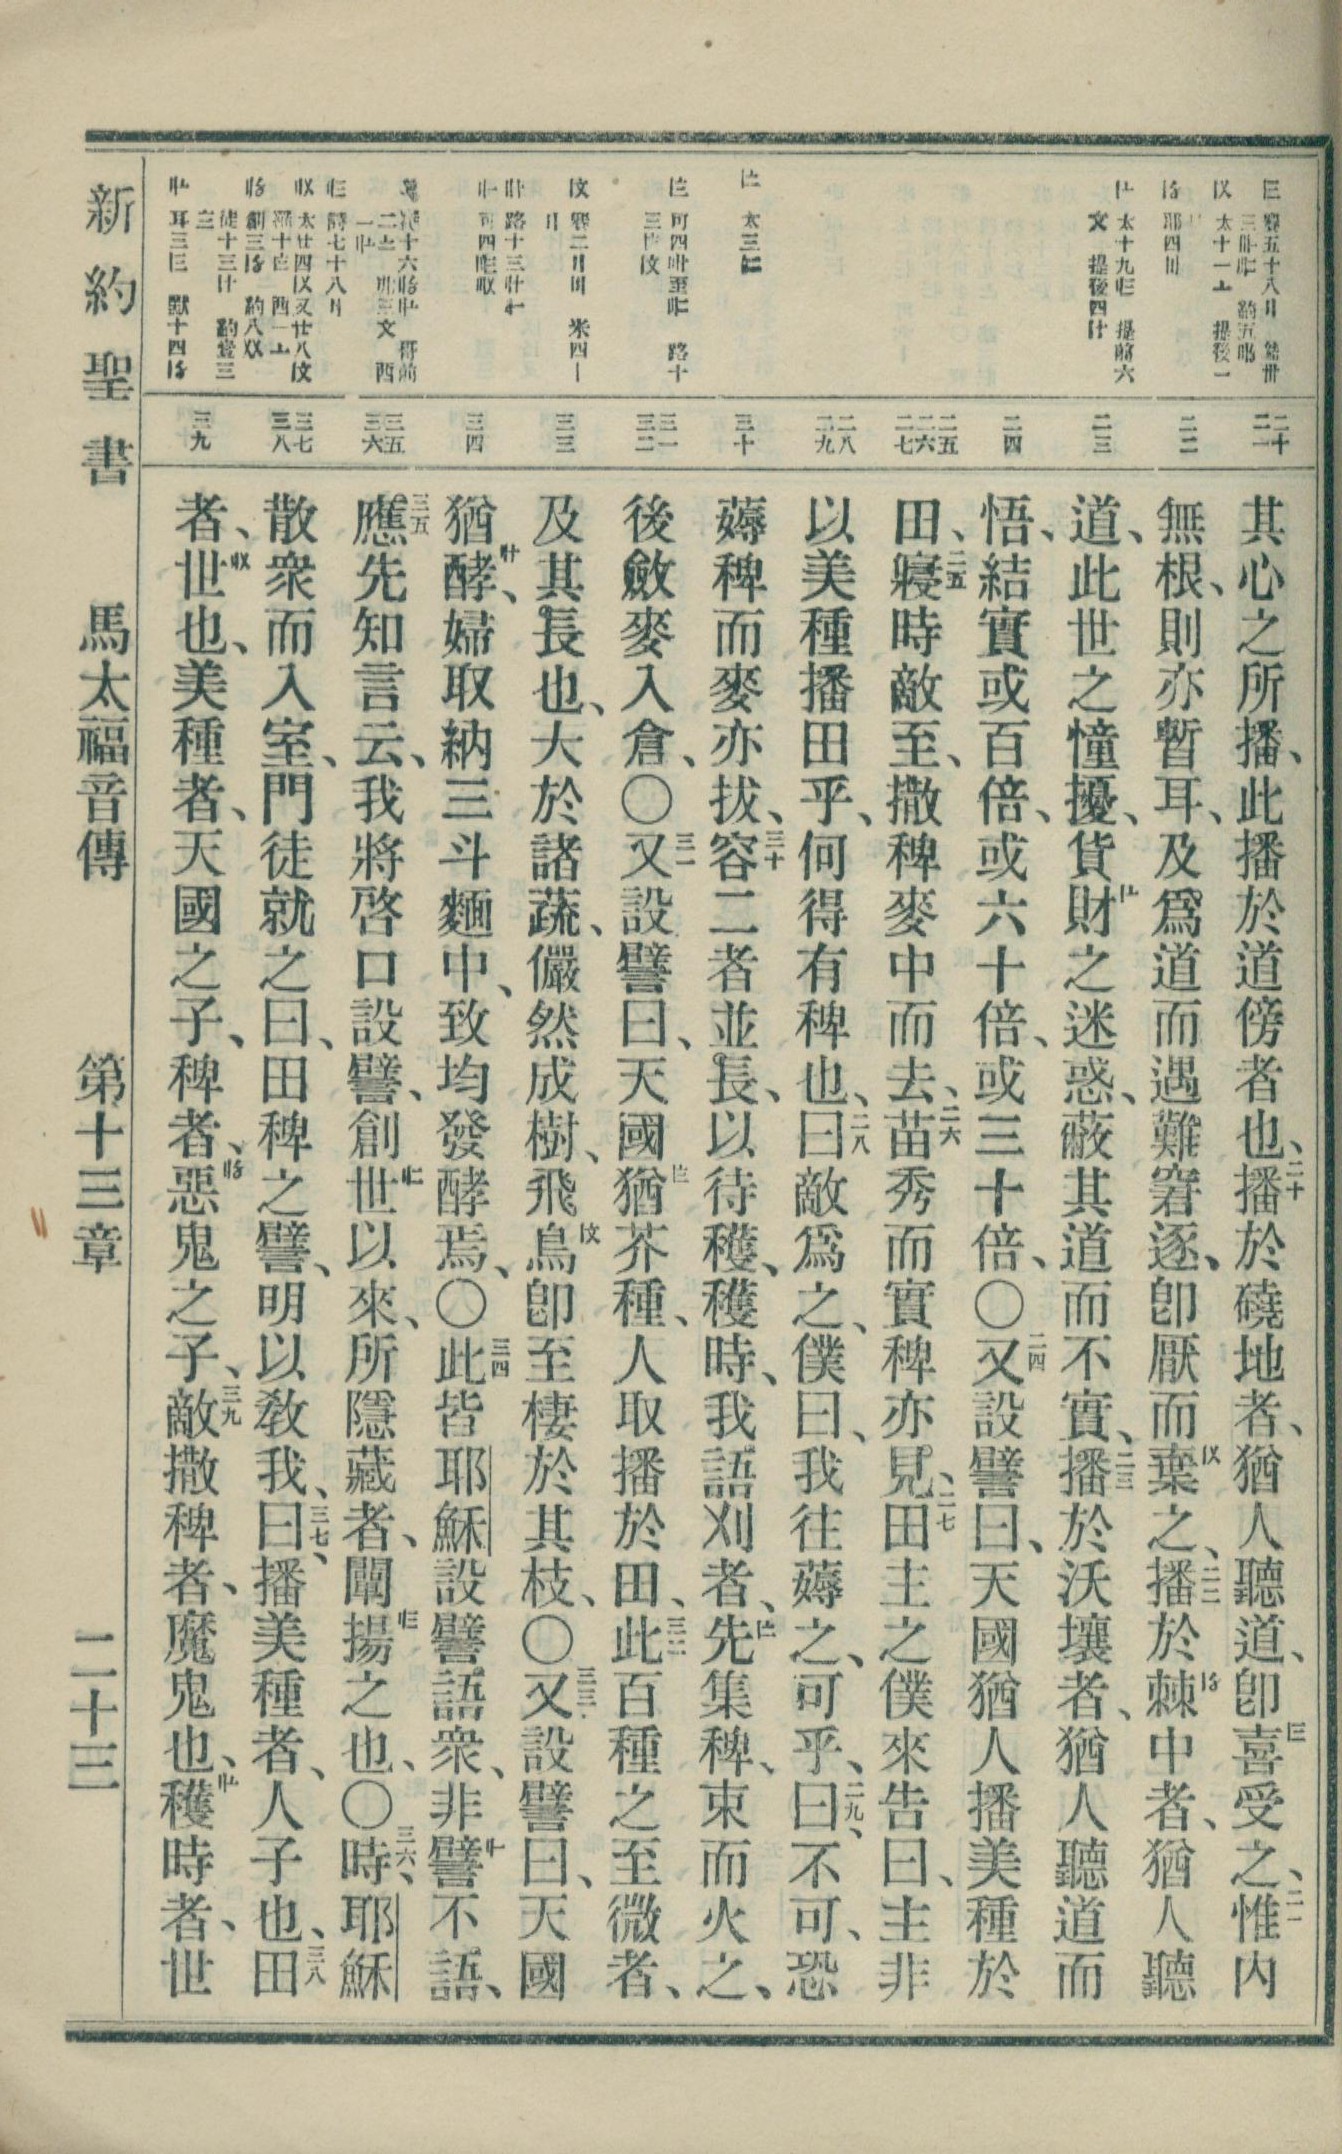 二十 二一
二二
二三
二四
二五 二六 二七
二八 二九
三十
三一 三二
三三
三四
三五 三六
三七 三八
三九
其心之所播、此播於道傍者也、二十播於磽地者、猶人聽道、卽喜受之、二一惟內
無根、則亦暫耳、及爲道而遇難窘逐、卽厭而棄之、二二播於棘中者、猶人聽
道、此世之憧擾、貨財之迷惑、蔽其道而不實、二三播於沃壤者、猶人聽道而
悟、結實或百倍、或六十倍、或三十倍、〇二四又設譬曰、天國猶人播美種於
田、二五寢時敵至、撒稗麥中而去、二六苗秀而實稗亦見、二七田主之僕來告曰、主非
以美種播田乎、何得有稗也、二八曰敵爲之、僕曰、我往薅之、可乎、二九曰、不可、恐
薅稗而麥亦拔、三十容二者並長、以待穫、穫時、我語刈者、先集稗、束而火之、
後斂麥入倉、〇三一又設譬曰、天國猶芥種、人取播於田、三二此百種之至微者、
及其長也、大於諸蔬、儼然成樹、飛鳥卽至棲於其枝、〇三三又設譬曰、天國
猶酵、婦取納三斗麵中、致均發酵焉、〇三四此皆耶穌設譬語衆、非譬不語、
三五應先知言云、我將啓口設譬、創世以來、所隱藏者、闡揚之也、〇三六時、耶穌
散衆而入室、門徒就之曰、田稗之譬、明以敎我、三七曰、播美種者、人子也、三八田
者、世也、美種者、天國之子、稗者、惡鬼之子、三九敵撒稗者、魔鬼也、穫時者、世
新約聖書 馬太福音傳 第十三章 二十三